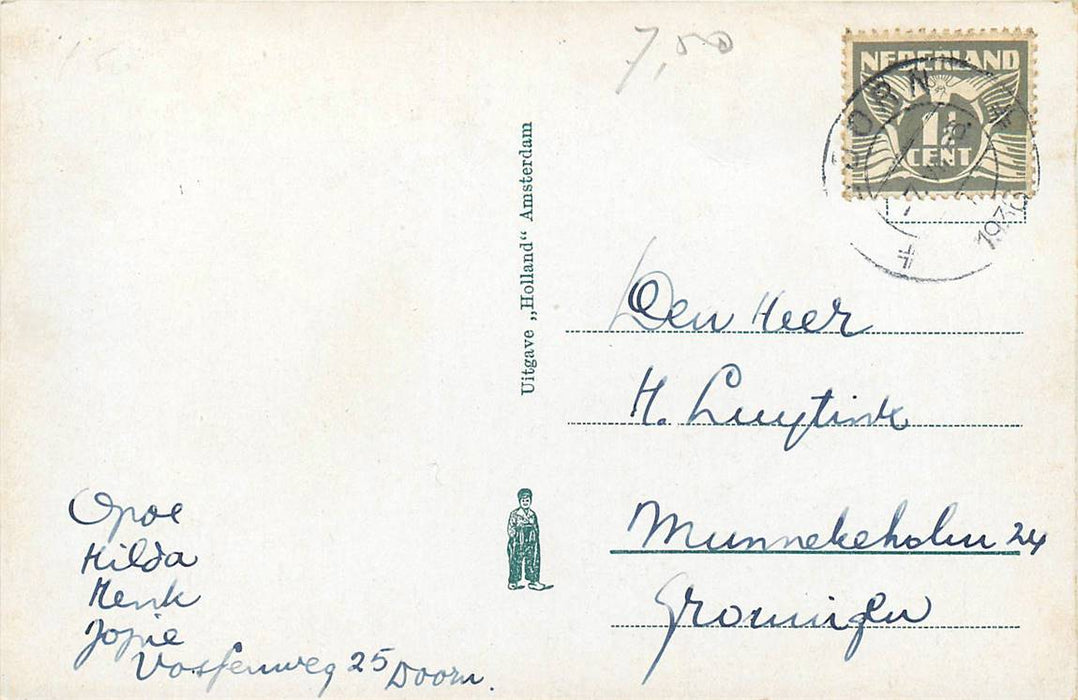 7,50
NEDERLAND
1½
CENT
DOORN
1936
Uitgave „Holland" Amsterdam
Den Heer
H. Luytink
Munnekeholm 24
Groningen
Opoe
Hilda
Henk
Jopie
Vossenweg 25 Doorn.